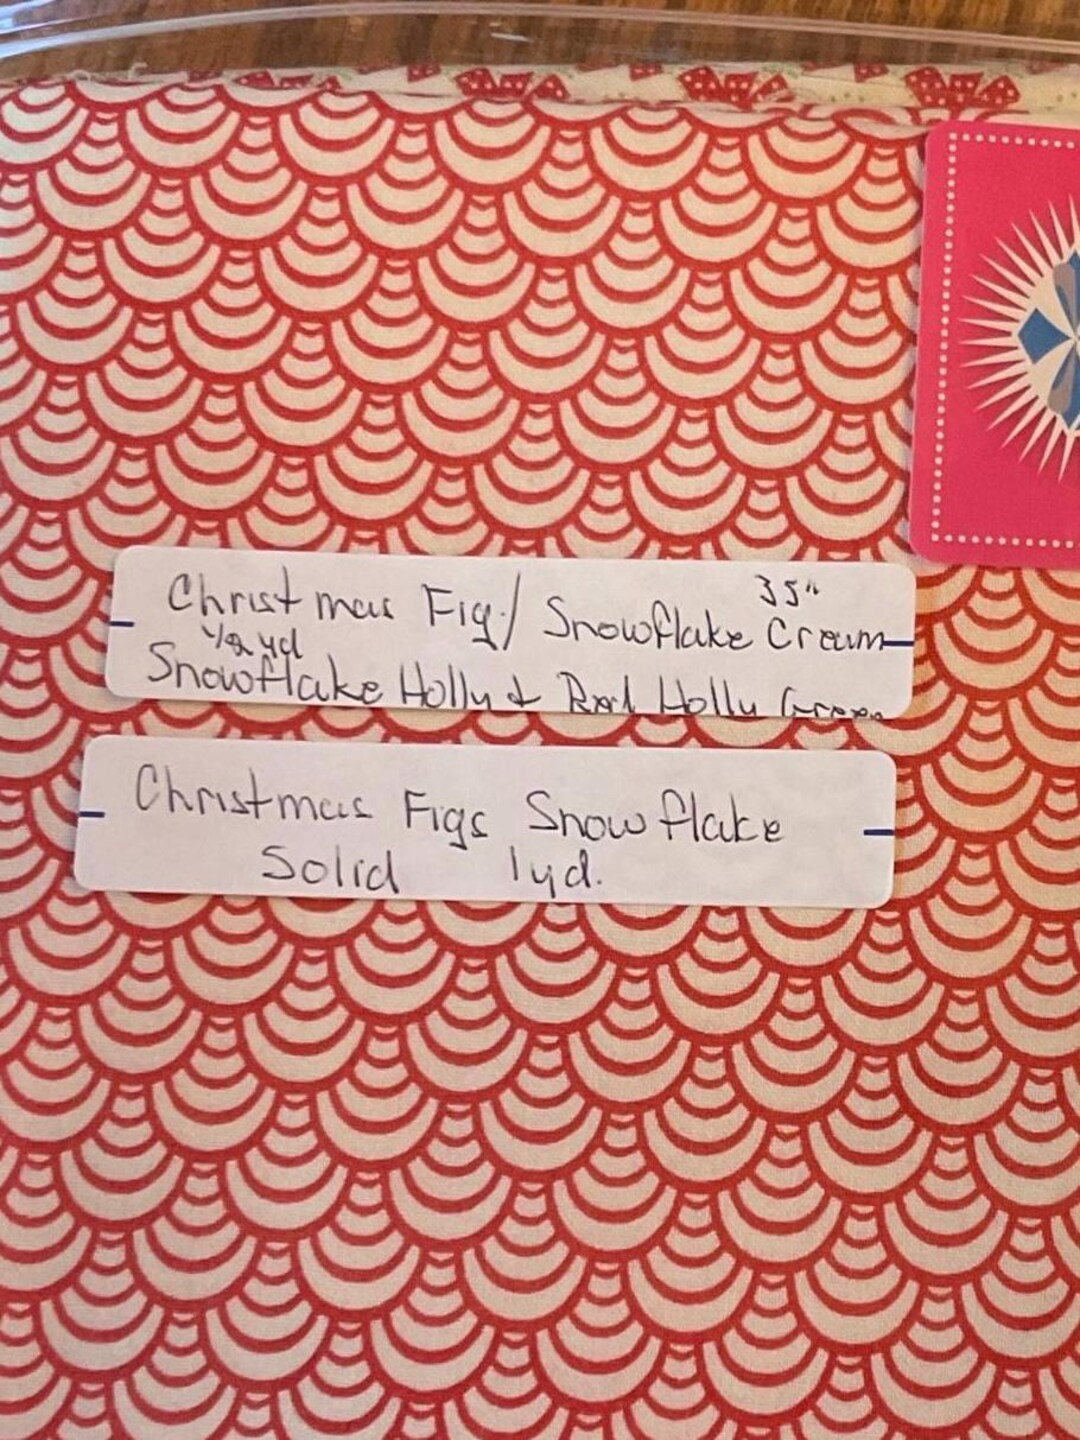 Christmas Fig./ Snowflake Cream 35"
1/2 yd
Snowflake Holly & Red Holly Green
Christmas Figs Snowflake
Solid 1yd.